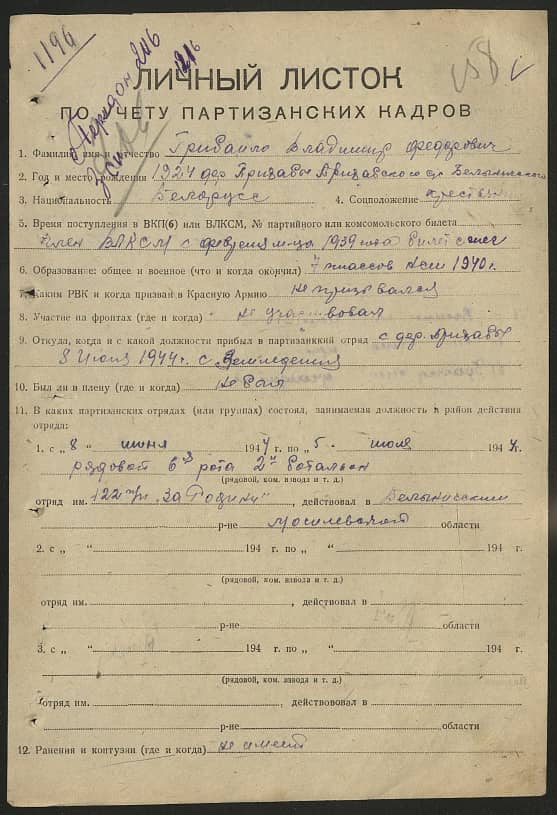 1196
ЛИЧНЫЙ ЛИСТОК
ПО УЧЕТУ ПАРТИЗАНСКИХ КАДРОВ
1. Фамилия, имя и отчество Грибайло Владимир Федорович
2. Год и место рождения 1924 дер.
3. Национальность Белорусс 4. Соцположение
5. Время поступления в ВКП(б) или ВЛКСМ, № партийного или комсомольского билета
Член ВЛКСМ с 1939 года билет
6. Образование: общее и военное (что и когда окончил) 7 классов НСШ 1940г.
7. Каким РВК и когда призван в Красную Армию не призывался
8. Участие на фронтах (где и когда) не участвовал
9. Откуда, когда и с какой должности прибыл в партизанский отряд с дер.
8 Июня 1944г. с Земледелия
10. Был ли в плену (где и когда) не был
11. В каких партизанских отрядах (или группах) состоял, занимаемая должность и район действия
отряда:
1. с „ 8 “ июня 1944 г. по „ 5 “ июля 1944 г.
рядовой 6я рота 2й батальон
(рядовой, ком. взвода и т. д.)
отряд им. 122 „За Родину“, действовал в Белыничском
р-не Могилевской области
2. с „ “ 194 г. по „ “ 194 г.
(рядовой, ком. взвода и т. д.)
отряд им. , действовал в
р-не области
3. с „ “ 194 г. по „ “ 194 г.
(рядовой, ком. взвода и т. д.)
отряд им. , действововал в
р-не области
12. Ранения и контузии (где и когда) не имеет